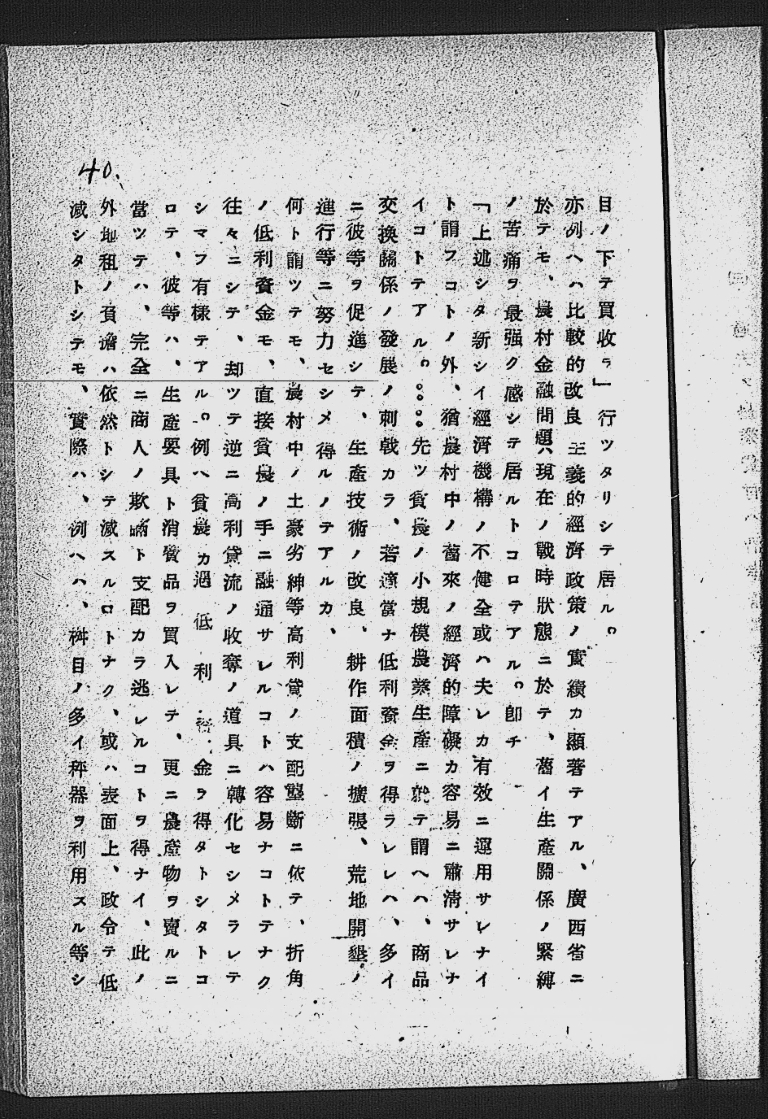 目ノ下テ買收ラ」行ツタリシテ居ル。
亦例ヘハ比較的改良主義的經濟政策ノ實績カ顯著テアル、廣西省ニ
於テモ、農村金融問題ハ現在ノ戰時狀態ニ於テ、舊イ生產關係ノ緊縛
ノ苦痛ヲ最强ク感シテ居ルトコロテアル。卽チ
「上述シタ新シイ經濟機構ノ不健全或ハ夫レカ有效ニ運用サレナイ
ト謂フコトノ外、猶農村中ノ舊來ノ經濟的障礙カ容易ニ肅清サレナ
イコトテアル。。。。先ツ貧農ノ小規模農業生產ニ就テ謂ヘハ、商品
交換關係ノ發展ノ刺戟カラ、若適當ナ低利資金ヲ得ラレレハ、多イ
ニ彼等ヲ促進シテ、生產技術ノ改良、耕作面積ノ擴張、荒地開墾ノ
進行等ニ努力セシメ得ルノテアルカ、
何ト謂ツテモ、農村中ノ土豪劣紳等高利貸ノ支配壟斷ニ依テ、折角
ノ低利資金モ、直接貧農ノ手ニ融通サレルコトハ容易ナコトテナク
往々ニシテ、却ツテ逆ニ高利貸流ノ收奪ノ道具ニ轉化セシメラレテ
シマフ有樣テアル。例ヘ貧農カ過低利資金ヲ得タトシタトコ
ロテ、彼等ハ、生產要具ト消費品ヲ買入レテ、更ニ農產物ヲ賣ルニ
當ツテハ、完全ニ商人ノ欺瞞ト支配カラ逃レルコトヲ得ナイ、此ノ
外地租ノ負擔ハ依然トシテ減スルロトナク、或ハ表面上、政令テ低
減シタトシテモ、實際ハ、例ヘハ、桝目ノ多イ秤器ヲ利用スル等シ
40.